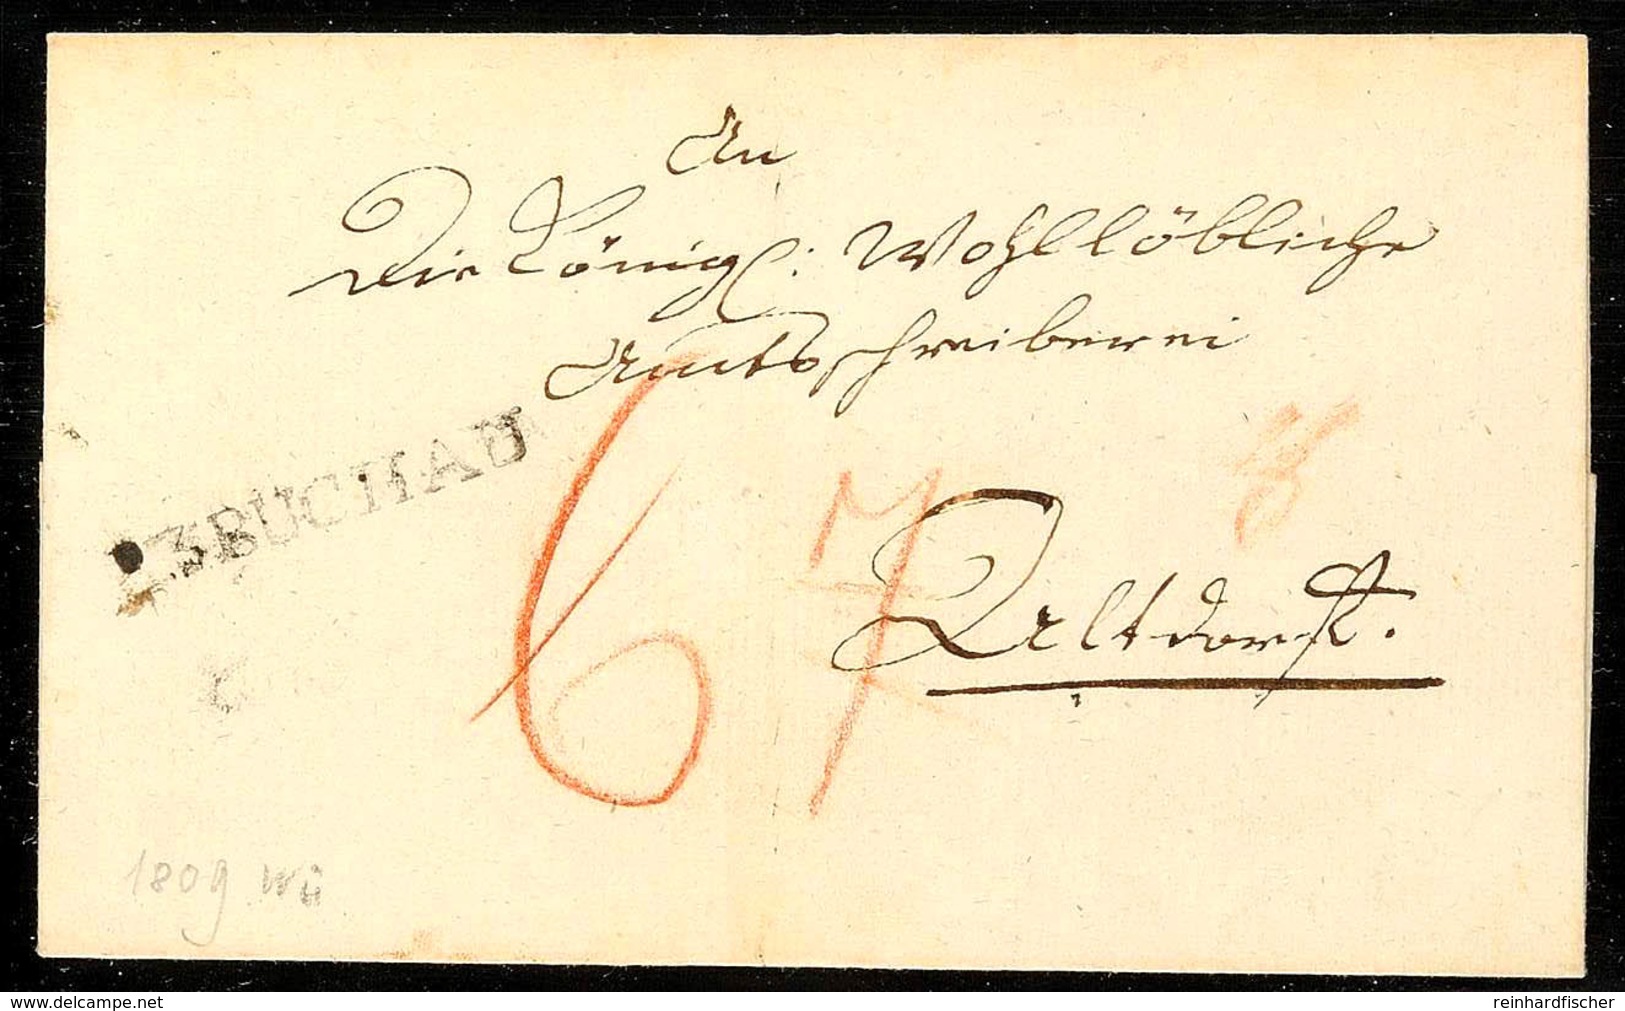 An
Die Königl: Wohllöbliche
Amtsschreiberei
R.3.BUCHAU
6
7
Altdorf.
1809 Wü
www.delcampe.net
reinhardfischer